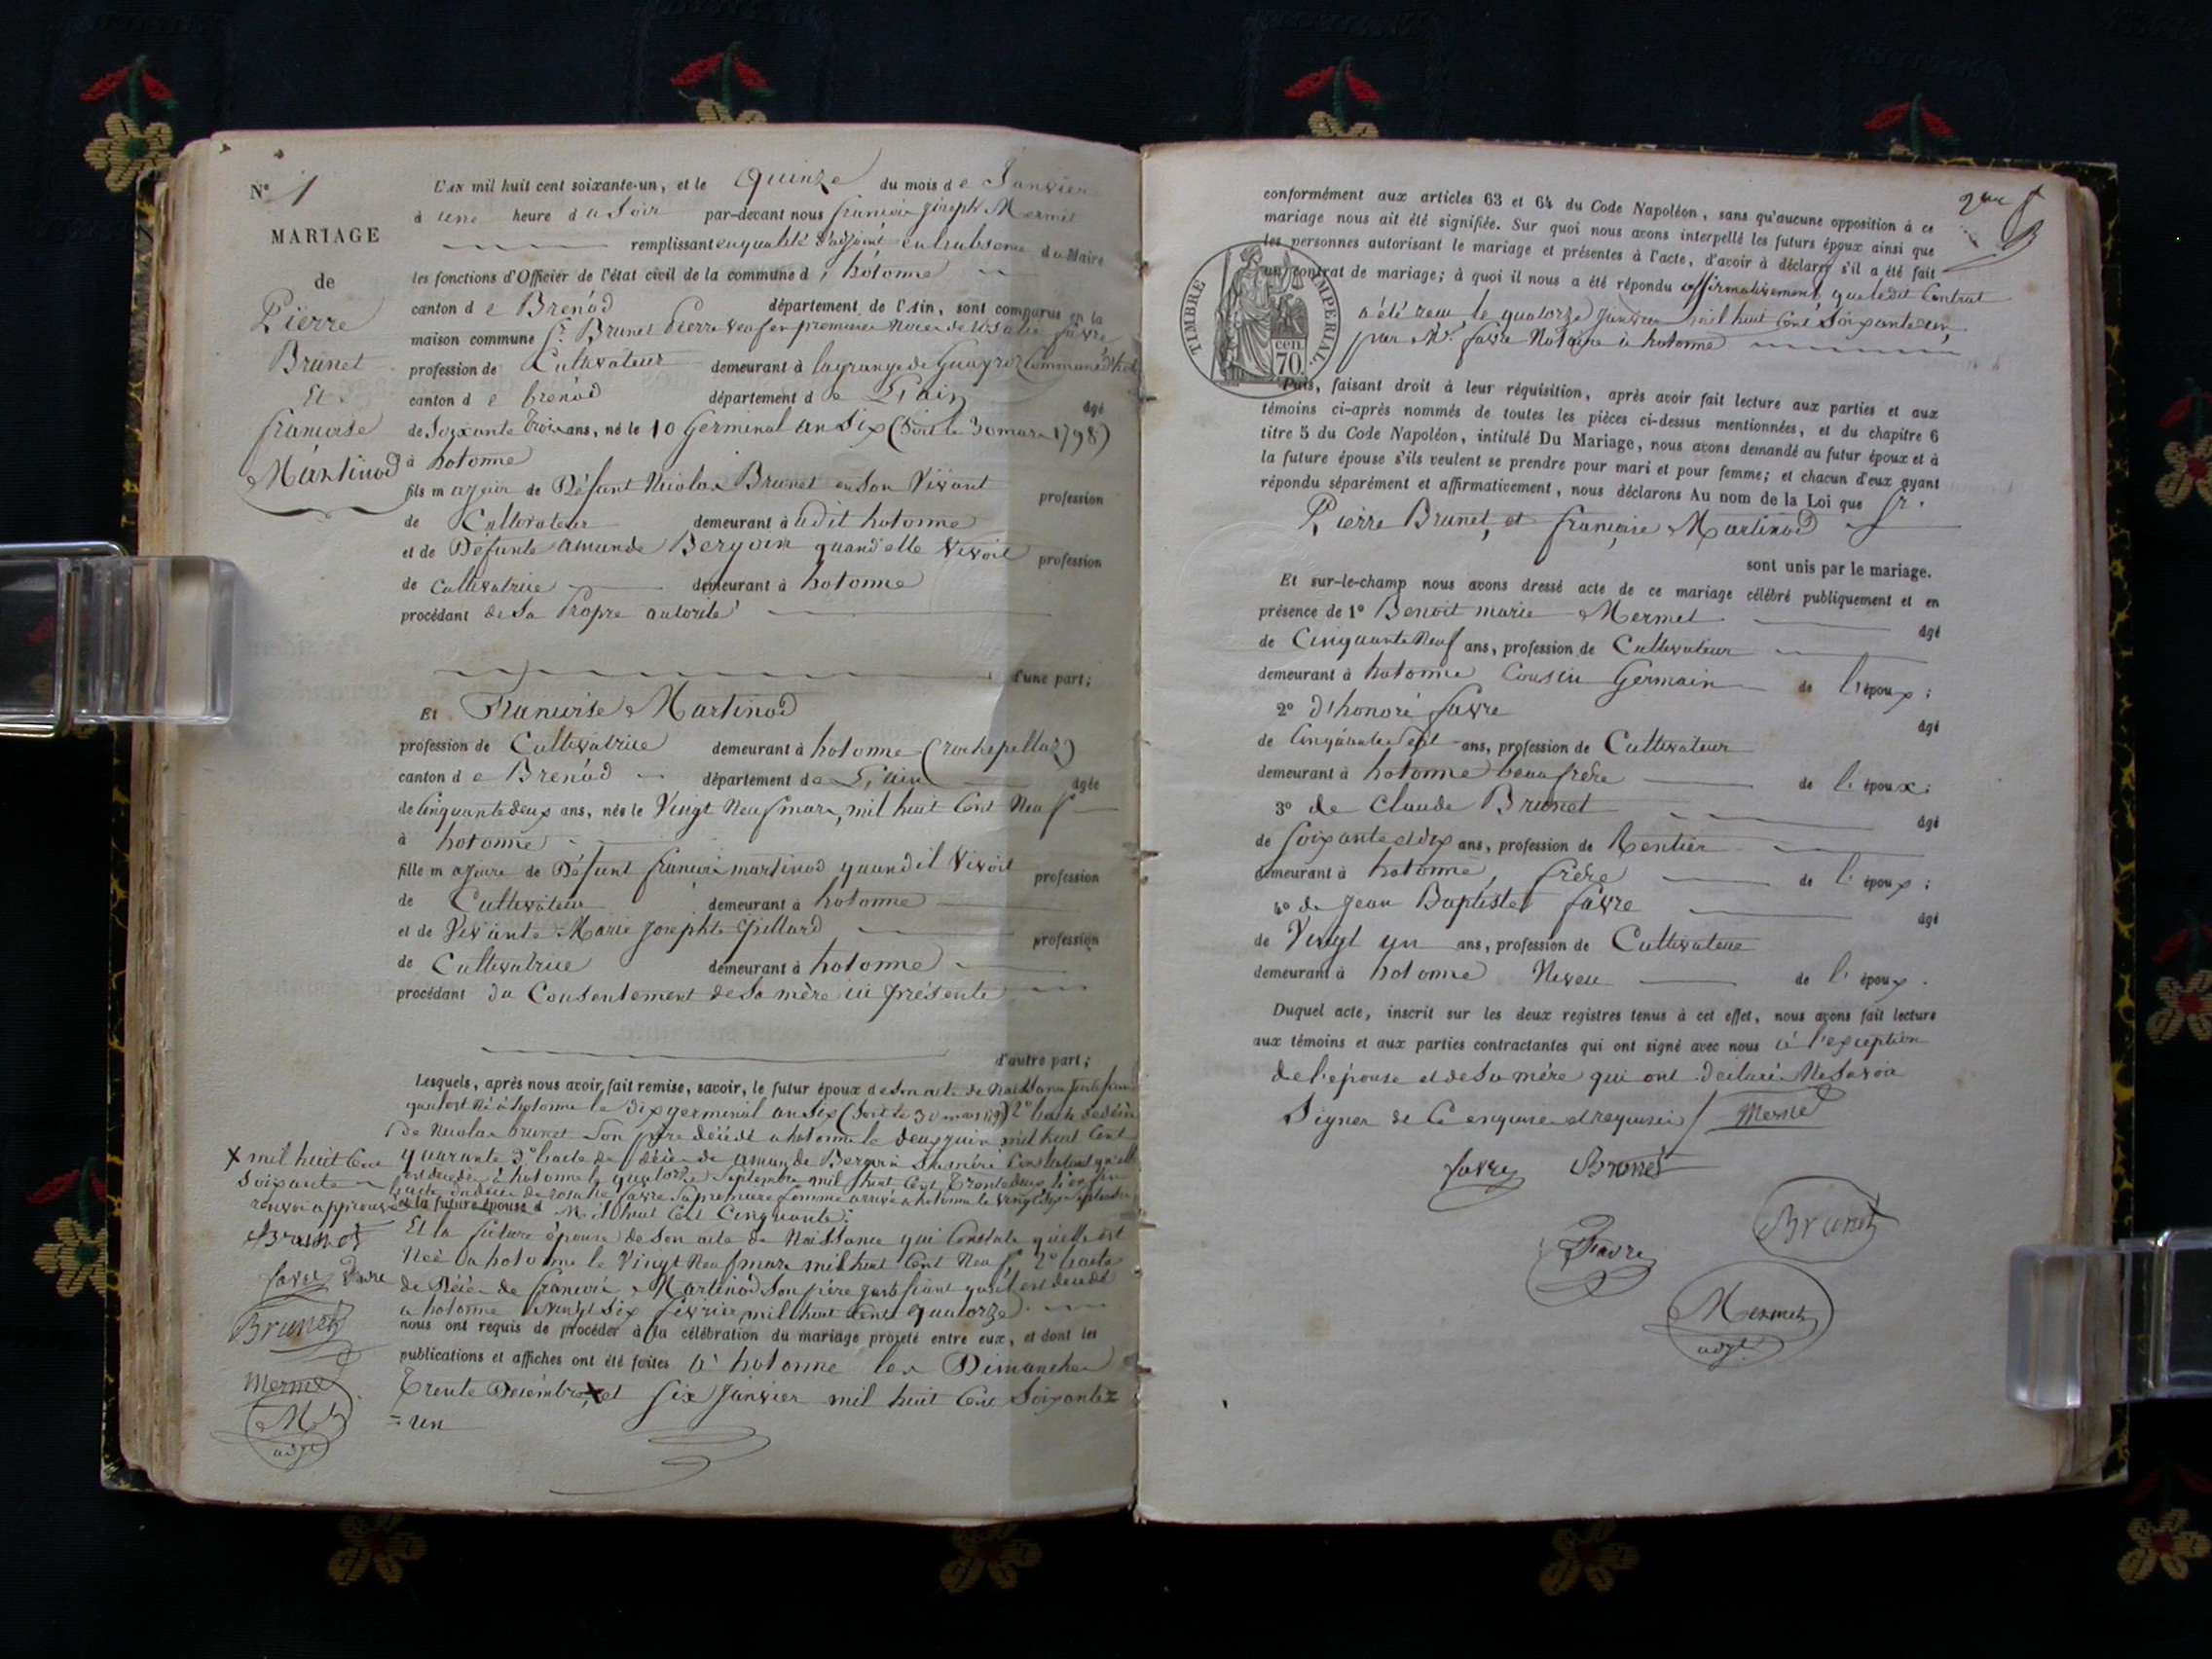 N° 1
MARIAGE
de
Pierre
Brunet
Et
françoise
Martinod
L'AN mil huit cent soixante-un, et le Quinze du mois de Janvier
à une heure du Soir par-devant nous françois joseph Mermet
remplissant en qualité d'adjoint en l'absence du Maire
les fonctions d'Officier de l'état civil de la commune d'hotonne
canton de Brénod département de l'Ain, sont comparus en la
maison commune Sr. Brunet Pierre veuf en premières Noces de Rosalie favre
profession de Cultivateur demeurant à lagrange de Commune d'hot
canton de brénod département de L'ain âgé
de Soixante trois ans, né le 10 Germinal an Six (Soit le 30 mars 1798)
à hotonne
fils majeur de Défunt Nicolas Brunet en son Vivant profession
de Cultivateur demeurant à udit hotonne
et de Défunte amande Bergoin quand elle Vivoit profession
de cultivatrice demeurant à hotonne
procédant de Sa Propre autorité
d'une part;
Et Françoise Martinod
profession de Cultivatrice demeurant à hotonne (rochepellaz)
canton de Brénod département de L'ain âgée
de Cinquante deux ans, née le Vingt Neuf mars, mil huit Cent Neuf
à hotonne
fille majeure de Défunt françois martinod quand il Vivoit profession
de Cultivateur demeurant à hotonne
et de Vivante Marie josephte Spillard profession
de Cultivatrice demeurant à hotonne
procédant du Consentement de Sa mère ici présente
d'autre part;
Lesquels, après nous avoir fait remise, savoir, le futur époux de Son acte de Naissance
qu'il est Né à hotonne le dix germinal an Six (Soit le 30 mars 1798) 2° l'acte de décès
de Nicolas brunet Son père décédé a hotonne le deux juin mil huit Cent
quarante 3° l'acte de décès de amande Bergoin Sa mère Constatant qu'elle
est décédée à hotonne le quatorze Septembre mil huit Cent Trente deux
l'acte de décès de rosalie favre Sa première femme arrivé a hotonne le vingt Septembre
et la future épouse d Mil huit Cent Cinquante.
Et la future épouse de Son acte de Naissance qui Constate qu'elle est
Née a hotonne le Vingt Neuf mars mil huit Cent Neuf, 2° l'acte
de Décès de françois Martinod Son père justifiant qu'il est décédé
a hotonne Vingt Six février mil huit Cent quatorze.
nous ont requis de procéder à la célébration du mariage projeté entre eux, et dont les
publications et affiches ont été faites à hotonne les Dimanches
Trente Décembre, X et Six Janvier mil huit Cent Soixante
= un
X mil huit Cent
Soixante
renvoi approuvé
Brunet
favre favre
Brunet
Mermet
adjt
2me
conformément aux articles 63 et 64 du Code Napoléon, sans qu'aucune opposition à ce
mariage nous ait été signifiée. Sur quoi nous avons interpellé les futurs époux ainsi que
les personnes autorisant le mariage et présentes à l'acte, d'avoir à déclarer s'il a été fait
un contrat de mariage; à quoi il nous a été répondu affirmativement, que ledit Contrat
a été reçu le quatorze Janvier mil huit Cent Soixante un,
par Me. favre Notaire à hotonne
TIMBRE IMPERIAL
70 cen.
Puis, faisant droit à leur réquisition, après avoir fait lecture aux parties et aux
témoins ci-après nommés de toutes les pièces ci-dessus mentionnées, et du chapitre 6
titre 5 du Code Napoléon, intitulé Du Mariage, nous avons demandé au futur époux et à
la future épouse s'ils veulent se prendre pour mari et pour femme; et chacun d'eux ayant
répondu séparément et affirmativement, nous déclarons Au nom de la Loi que Sr.
Pierre Brunet, et françoise Martinod
sont unis par le mariage.
Et sur-le-champ nous avons dressé acte de ce mariage célébré publiquement et en
présence de 1° Benoit marie Mermet âgé
de Cinquante Neuf ans, profession de Cultivateur
demeurant à hotonne Cousin Germain de l'époux;
2° d'honoré favre âgé
de Cinquante Sept ans, profession de Cultivateur
demeurant à hotonne beau frère de l'époux;
3° de Claude Brunet âgé
de Soixante et dix ans, profession de Rentier
demeurant à hotonne, frère de l'époux;
4° de Jean Baptiste favre âgé
de Vingt un ans, profession de Cultivateur
demeurant à hotonne Neveu de l'époux.
Duquel acte, inscrit sur les deux registres tenus à cet effet, nous avons fait lecture
aux témoins et aux parties contractantes qui ont signé avec nous à l'exception
de l'épouse et de Sa mère qui ont déclaré Ne Savoir
Signer de Ce enquises et requises Mermet
favre Brunet
Brunet
favre
Mermet
adjt.